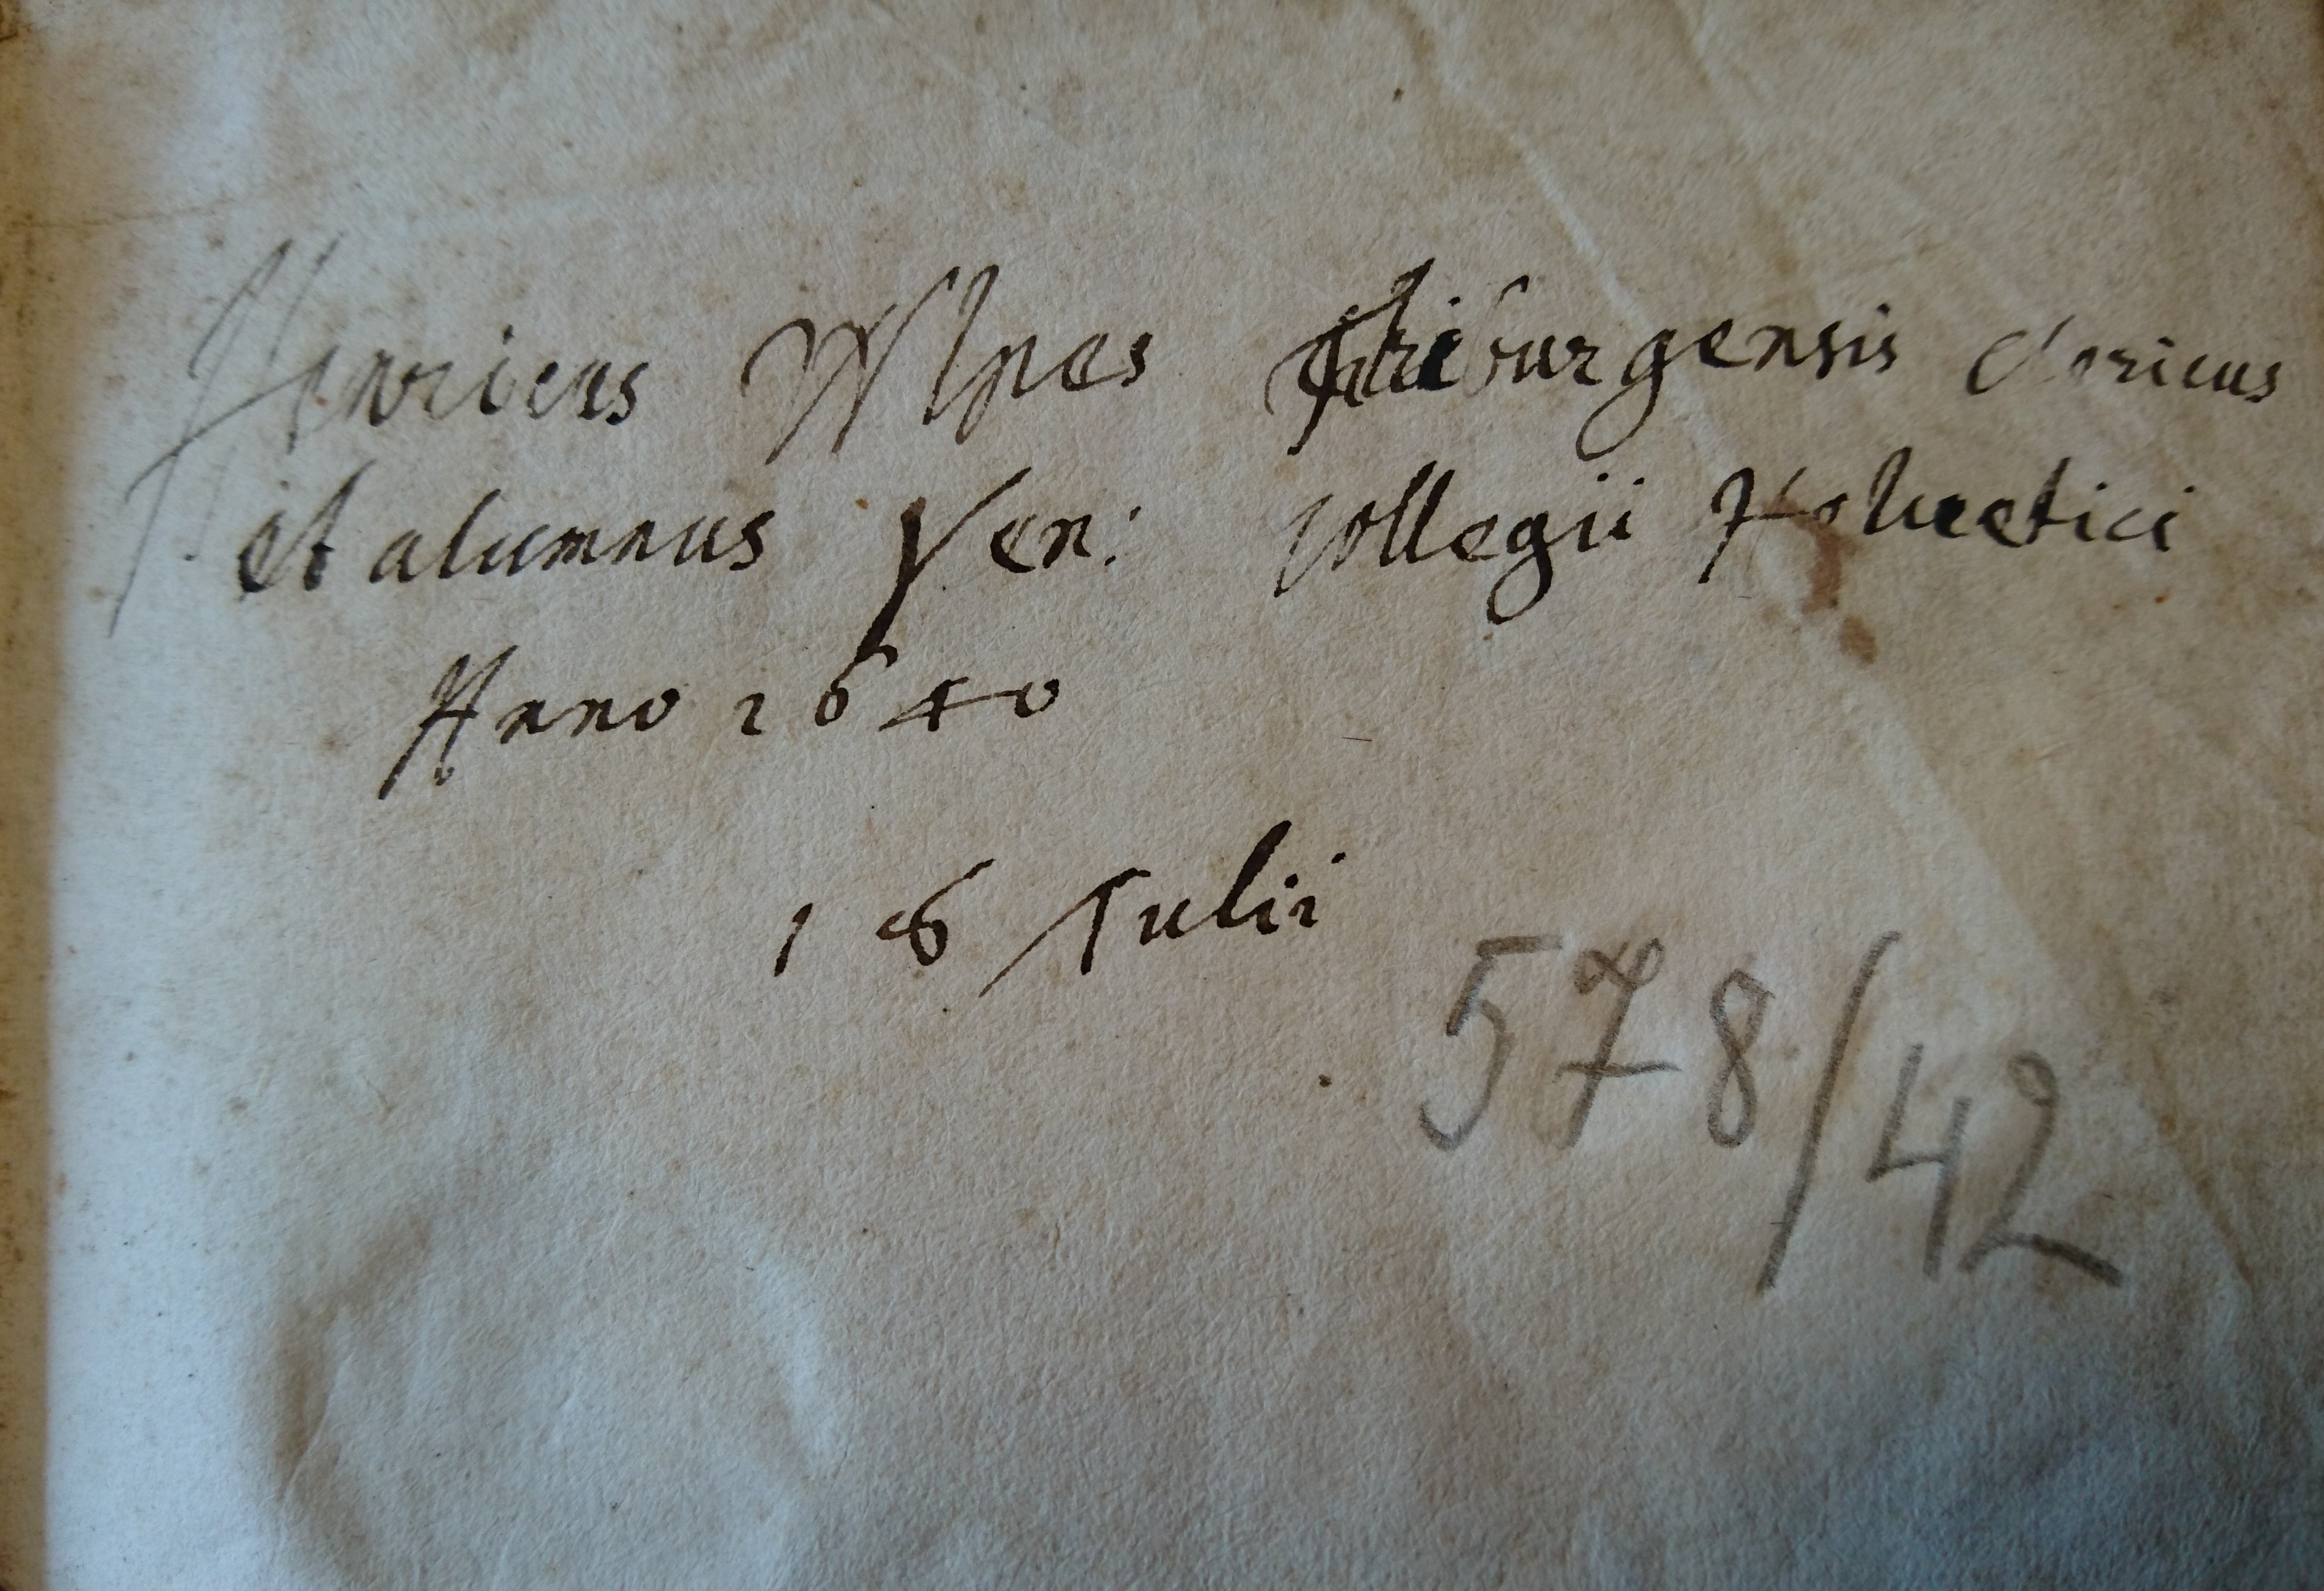 Henricus Friburgensis clericus
et alumnus Ven: Collegii Helvetici
Anno 1640
16 Julii
578/42